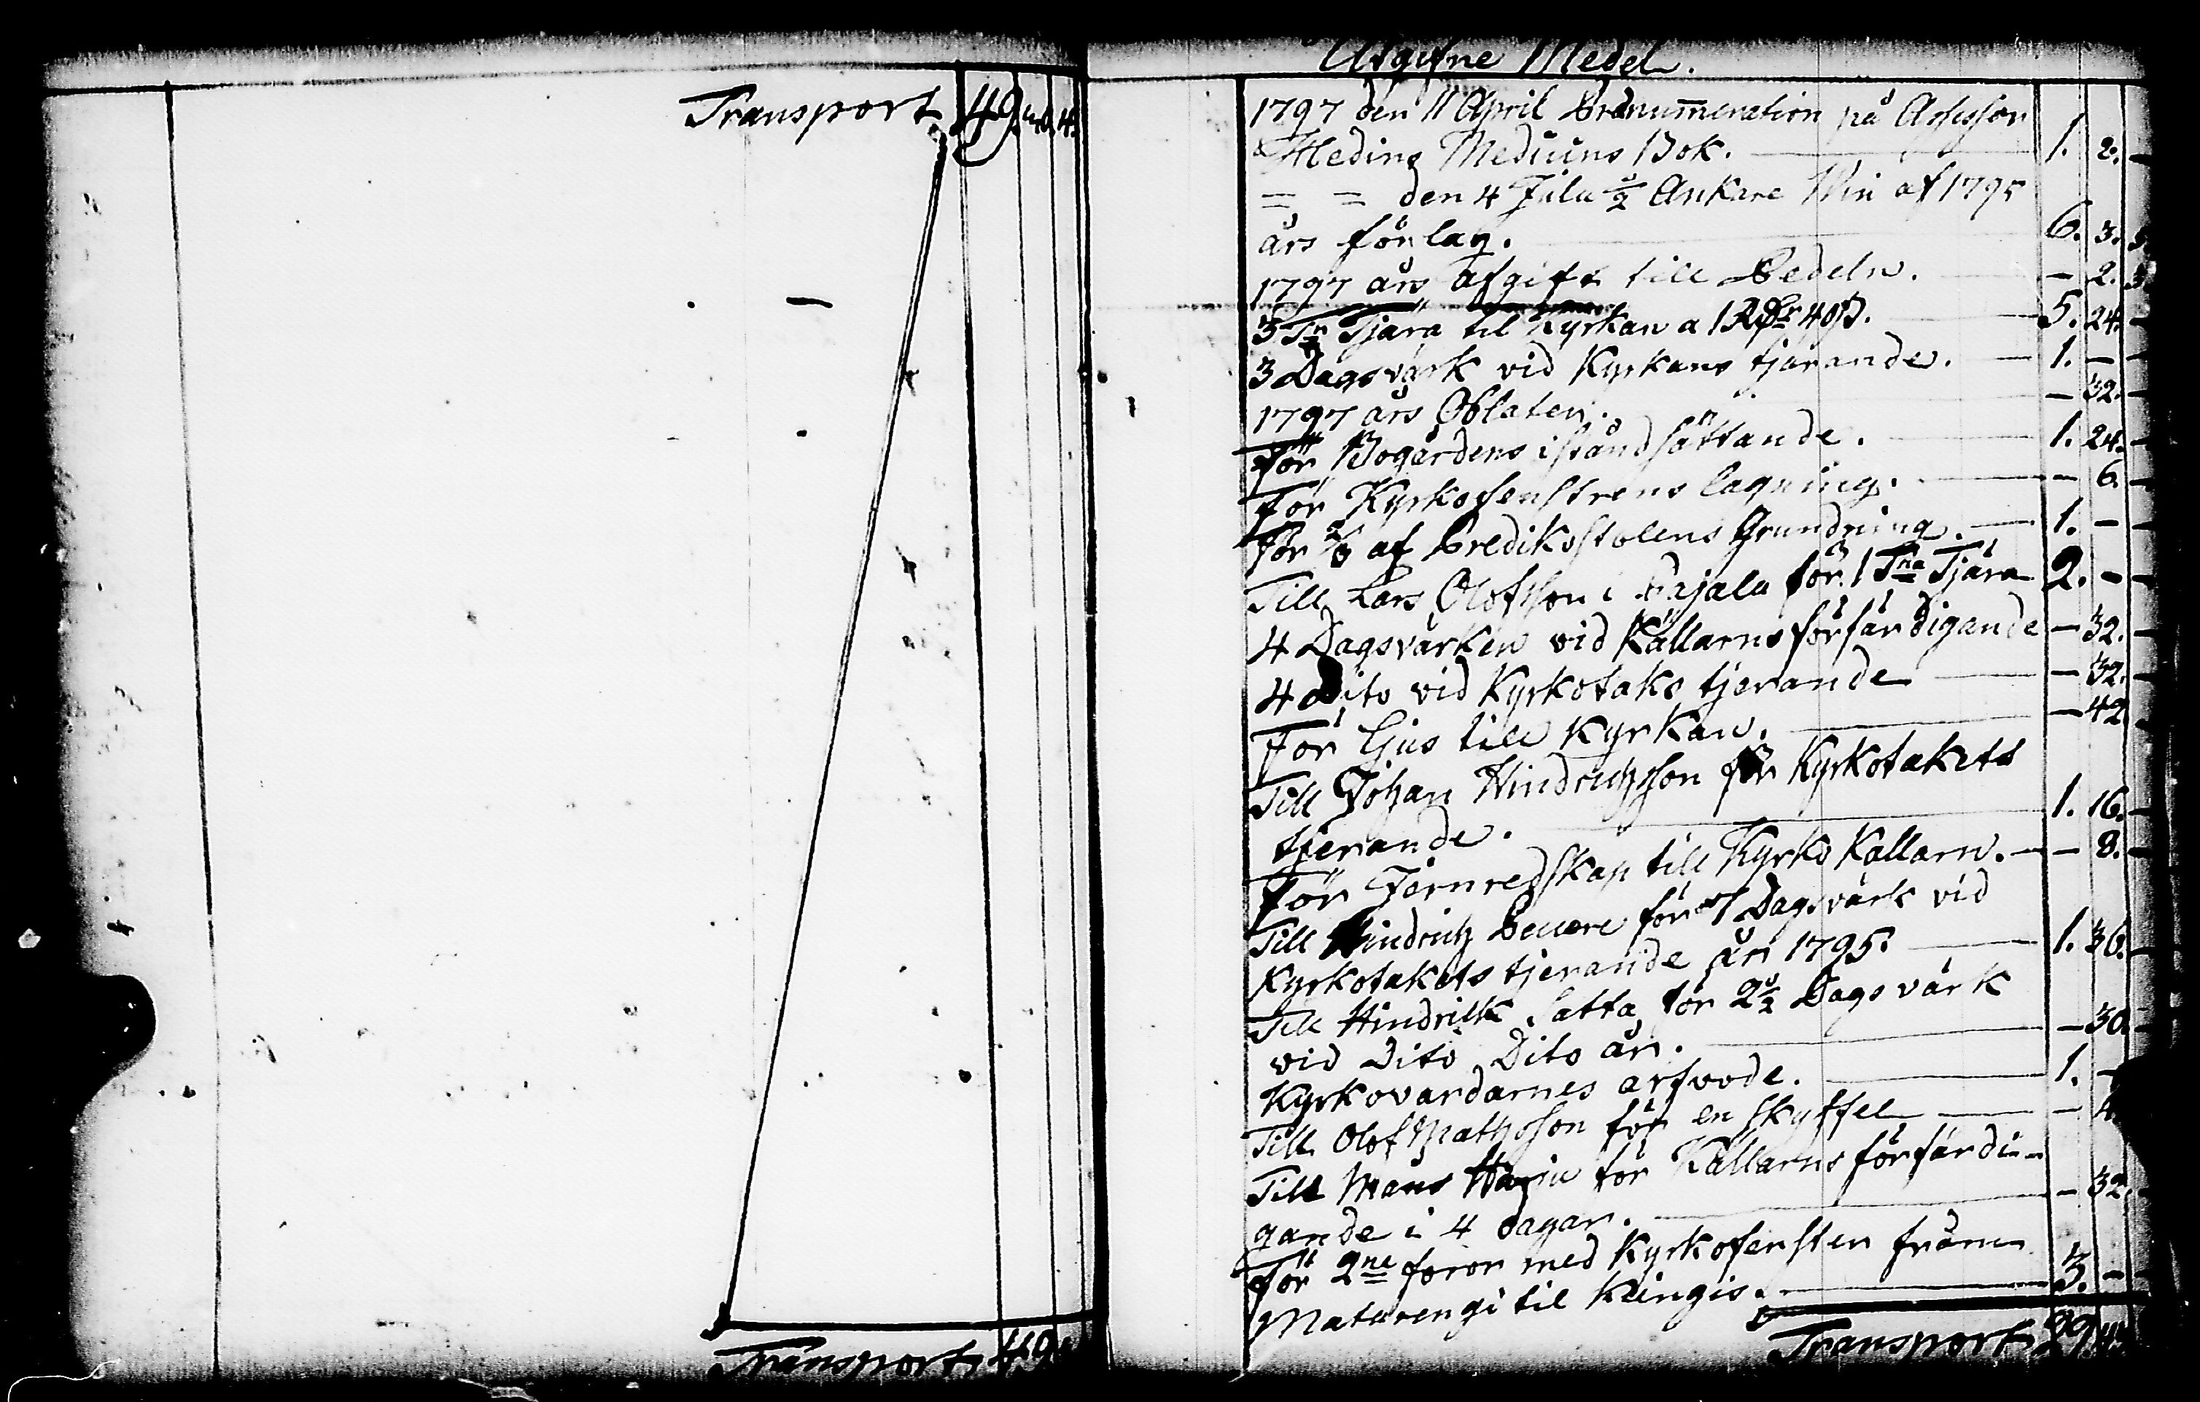 Transport 49. 40. 4.
Transport 49
Utgifne Medel.
1797 den 11 April Prænumeration på Assessor
Hedins Medicins Bok. 1. 2. —
= = den 4 Julii ½ Ankare Win af 1795
års förlag. 6. 3. 3.
1797 års afgift till Pedeln. — 2. 3.
3 Tr Tjära til Kyrkan a 1 Rdr 40 ß. 5. 24. —
3 Dagsvärk vid Kyrkans tjärande. 1. — —
1797 års Oblater. — 32. —
För Bogårdens iståndsättande. 1. 24. —
För Kyrkofenstrens lagning. — 6. —
För af Predikstolens Grundning. 1. — —
Till Lars Olofsson i Pajala för 1 Tna Tjära 2. — —
4 Dagsvärken vid Källarns förfärdigande — 32. —
4 Dito vid Kyrkotaks tjerande — 32. —
För ljus till Kyrkan. — 42 —
Till Johan Hindrichsson för Kyrkotakets
tjerande. 1. 16. —
För Jernredskap till Kyrko Källarn. — 8. —
Till Hindrich för 7 Dagsvärk vid
Kyrkotakets tjerande år 1795. 1. 36. —
Till Hindrik Satta för 2½ Dagsvärk
vid Dito Dito år. — 30. —
Kyrkovärdarnes arfvode. 1. —
Till Olof Mathsson för en skyffel — 4
Till Måns Harju för Källarns förfärdi-
gande i 4 dagar. — 32. —
För 2ne foror med Kyrkofenster från
Matarengi til Kengis. 3. — —
Transport 29. 4